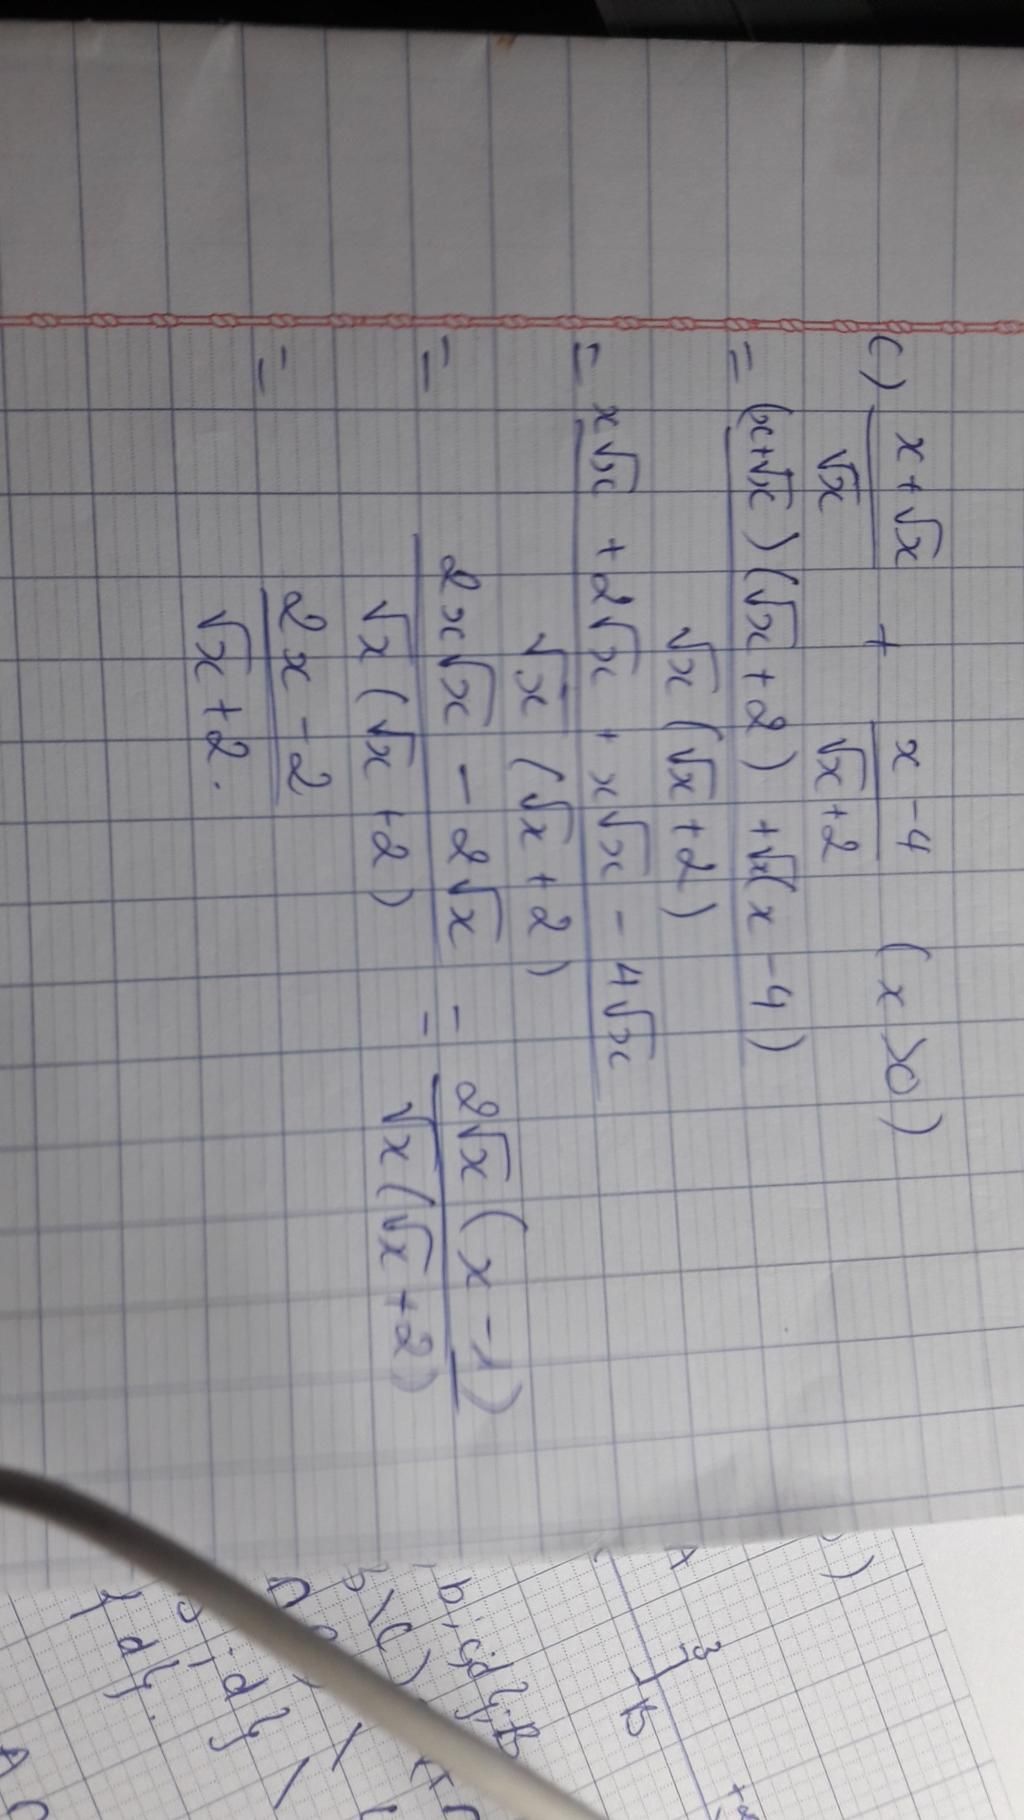 c) (x+√x)/√x + (x-4)/(√x+2) (x>0)
= ((x+√x)(√x+2) +√x(x-4))/(√x(√x+2))
= (x√x +2√x + x√x - 4√x)/(√x (√x+2))
= (2x√x - 2√x)/(√x(√x+2)) = (2√x(x-1))/(√x(√x+2))
= (2x-2)/(√x+2).
A
3
B